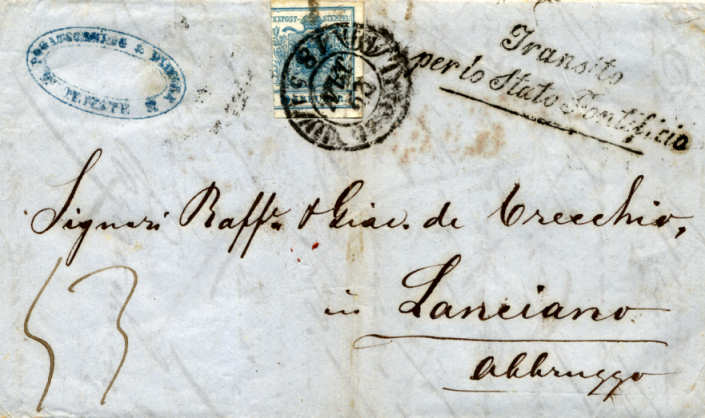 TRIESTE
Transito
per lo Stato Pontificio
Signori Raff. & Giac. de Crecchio,
in Lanciano
Abbruzzo
53